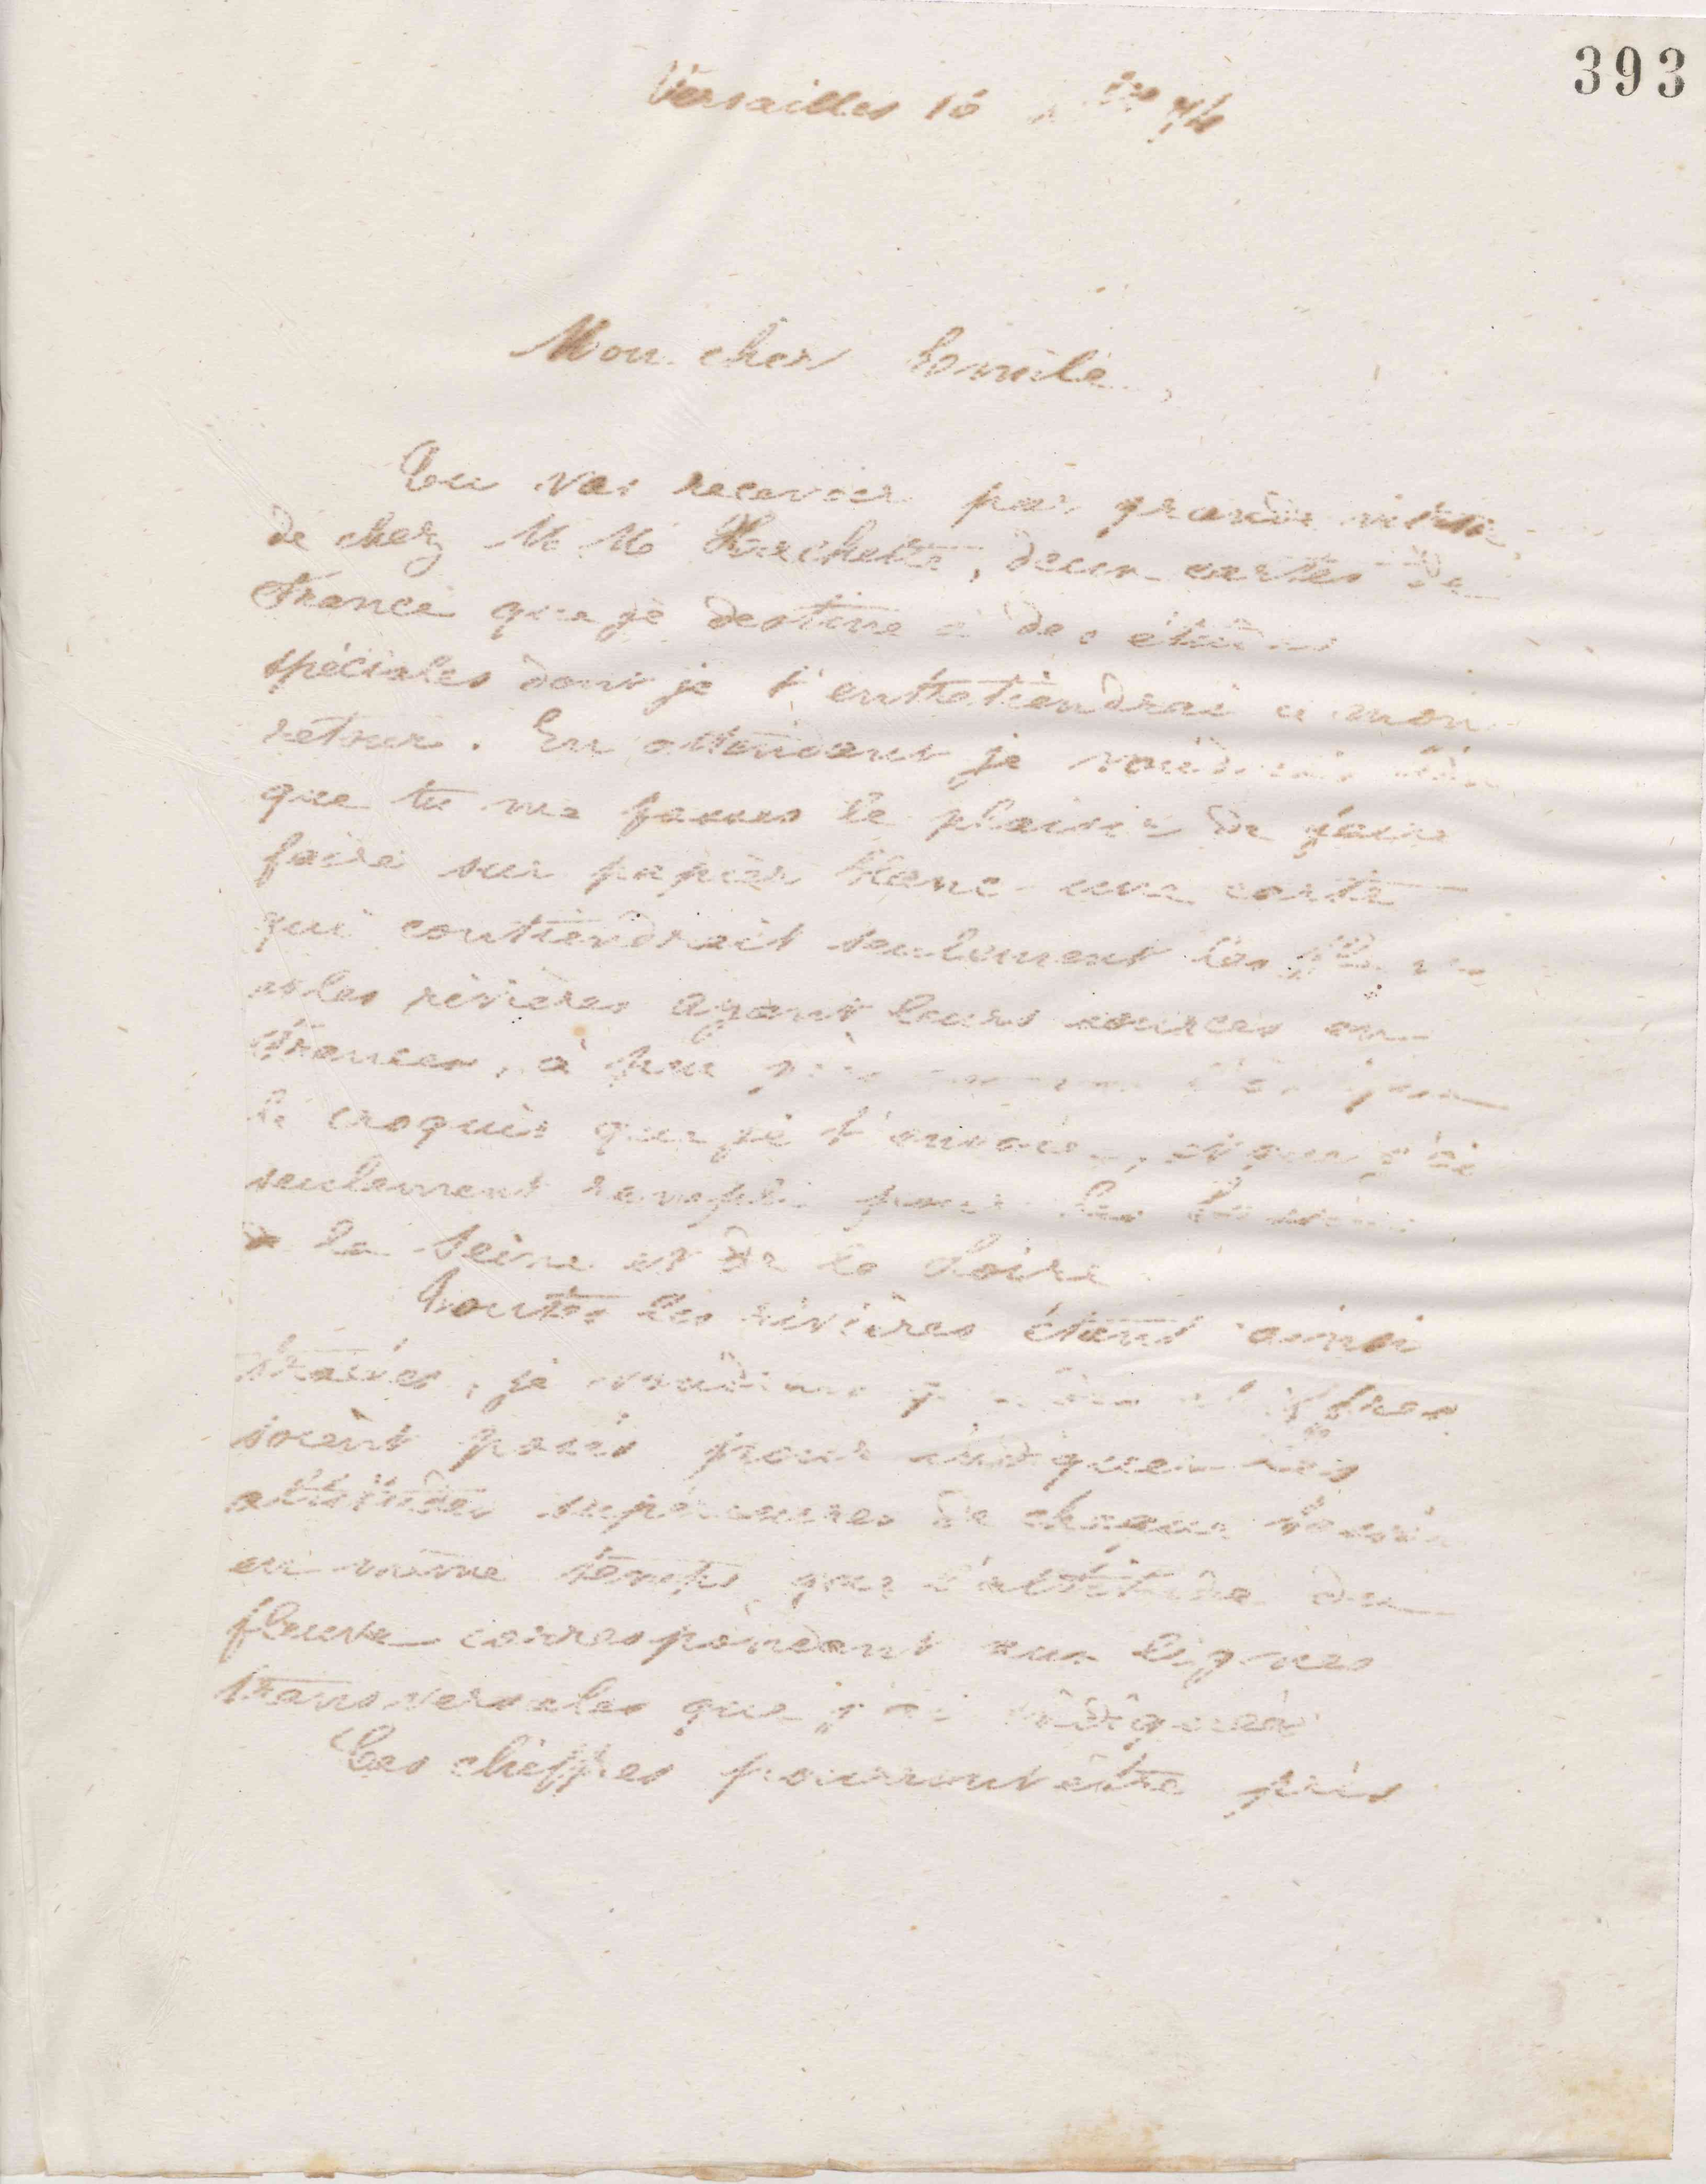 393
Versailles 16 74
Mon cher Emile,
Tu vas recevoir par grande vitesse,
de chez M M Hachette, deux cartes de
France que je destine à des études
spéciales dont je t'entretiendrai à mon
retour. En attendant je voudrais
que tu me fasses le plaisir de faire
faire sur papier blanc une carte
qui contiendrait seulement les
et les rivières ayant leurs sources en
France, à peu près
le croquis que je t'envoie, et que j'ai
seulement rempli pour les bassins
de la Seine et de la Loire
Toutes les rivières étant ainsi
tracées, je voudrais
soient posés pour indiquer les
altitudes supérieures de chaque bassin
en même temps que l'altitude du
fleuve correspondant aux lignes
transversales que j'ai indiquées
Ces chiffres pourront être pris